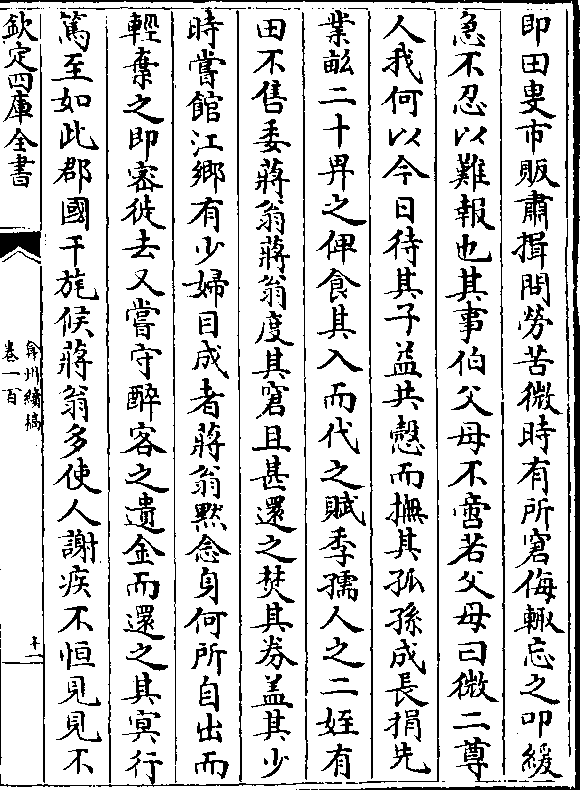 即田叟市販肅揖問勞苦微時有所窘侮輙忘之叩緩
急不忍以難報也其事伯父母不啻若父母曰微二尊
人我何以今日待其子益共慤而撫其孤孫成長捐先
業畝二十畀之俾食其入而代之賦季孺人之二姪有
田不售委蔣翁蔣翁度其窘且甚還之焚其券盖其少
時嘗館江鄉有少婦目成者蔣翁黙念身何所自出而
輕棄之即宻徙去又嘗守醉客之遺金而還之其㝠行
篤至如此郡國干旄候蔣翁多使人謝疾不恒見見不
欽定四庫全書
弇州續稿
卷一百